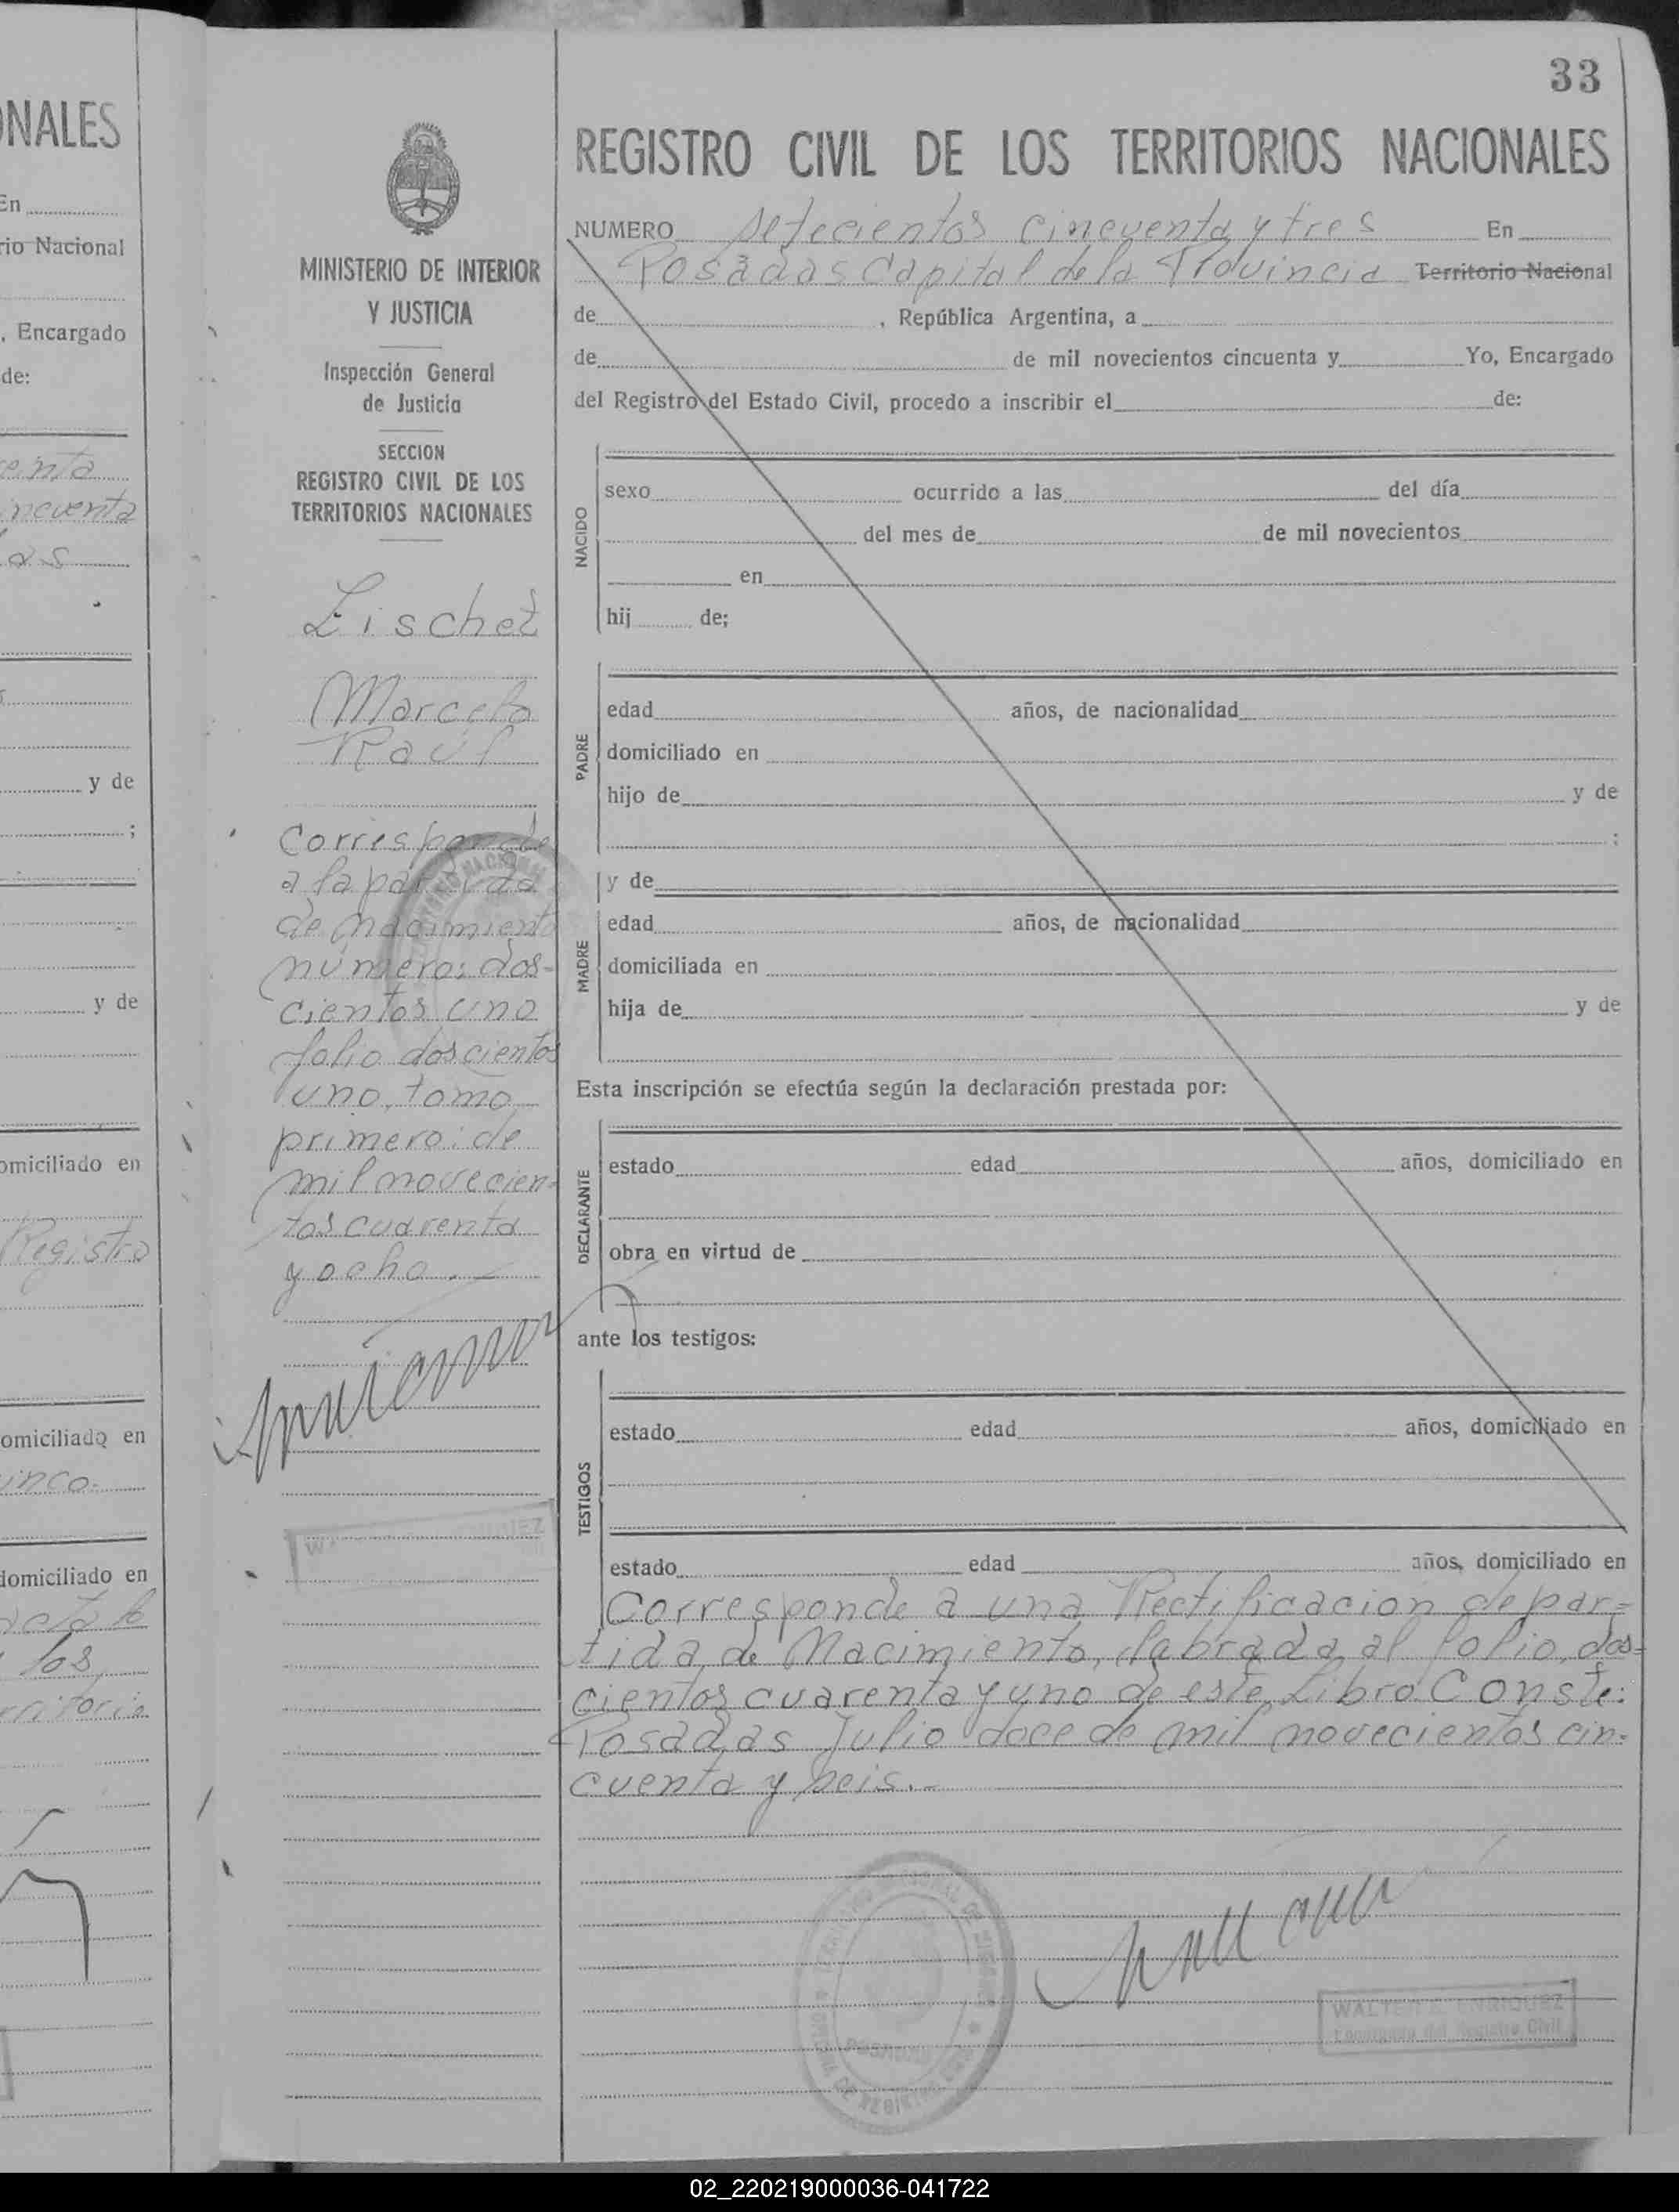 33
NALES
En
rio Nacional
, Encargado
de:
cincuenta
y de
;
y de
omiciliado en
Registro
omiciliado en
domiciliado en
los
MINISTERIO DE INTERIOR
Y JUSTICIA
Inspección General
de Justicia
SECCION
REGISTRO CIVIL DE LOS
TERRITORIOS NACIONALES
Lischet
Marcelo
Raúl
Corresponde
a la partida
de Nacimiento
número: dos-
cientos uno
folio doscientos
uno, tomo
primero: de
mil novecien-
tos cuarenta
y ocho.-
REGISTRO CIVIL DE LOS TERRITORIOS NACIONALES
NUMERO setecientos cincuenta y tres En
Posadas Capital de la Provincia Territorio Nacional
de , República Argentina, a
de de mil novecientos cincuenta y Yo, Encargado
del Registro del Estado Civil, procedo a inscribir el de:
NACIDO
sexo ocurrido a las del día
del mes de de mil novecientos
en
hij de;
PADRE
edad años, de nacionalidad
domiciliado en
hijo de y de
;
y de
MADRE
edad años, de nacionalidad
domiciliada en
hija de y de
Esta inscripción se efectúa según la declaración prestada por:
DECLARANTE
estado edad años, domiciliado en
obra en virtud de
ante los testigos:
TESTIGOS
estado edad años, domiciliado en
estado edad años, domiciliado en
Corresponde a una Rectificacion de par=
tida de Nacimiento, labrada al folio, dos=
cientos cuarenta y uno de este Libro. Conste:
Posadas Julio doce de mil novecientos cin-
cuenta y seis.-
WALTER ENRIQUEZ
Encargado del Registro Civil
02_220219000036-041722